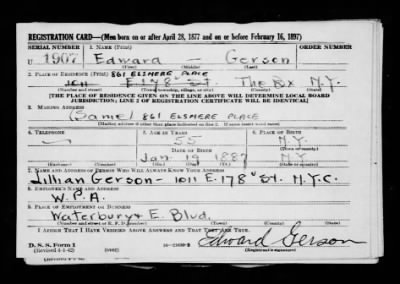 REGISTRATION CARD—(Men born on or after April 28, 1877 and on or before February 16, 1897)
SERIAL NUMBER 1. NAME (Print) ORDER NUMBER
U 1907 Edward — Gerson
(First) (Middle) (Last)
2. PLACE OF RESIDENCE (Print) 861 ELSMERE PLACE
1011 E 178 St. The Bx N.Y.
(Number and street) (Town, township, village, or city) (County) (State)
[THE PLACE OF RESIDENCE GIVEN ON THE LINE ABOVE WILL DETERMINE LOCAL BOARD
JURISDICTION; LINE 2 OF REGISTRATION CERTIFICATE WILL BE IDENTICAL]
3. MAILING ADDRESS
(Same) 861 ELSMERE PLACE
[Mailing address if other than place indicated on line 2. If same insert word same]
4. TELEPHONE 5. AGE IN YEARS 6. PLACE OF BIRTH
— 55 N.Y.
DATE OF BIRTH (Town or county)
Jan 19 1887 N.Y.
(Mo.) (Day) (Yr.) (State or country)
7. NAME AND ADDRESS OF PERSON WHO WILL ALWAYS KNOW YOUR ADDRESS
Lillian Gerson - 1011 E. 178 St. N.Y.C.
8. EMPLOYER'S NAME AND ADDRESS
W.P.A.
9. PLACE OF EMPLOYMENT OR BUSINESS
Waterbury & E. Blvd.
(Number and street or R. F. D. number) (Town) (County) (State)
I AFFIRM THAT I HAVE VERIFIED ABOVE ANSWERS AND THAT THEY ARE TRUE.
D. S. S. Form 1
(Revised 4-1-42) (over) Edward Gerson
(Registrant's signature)